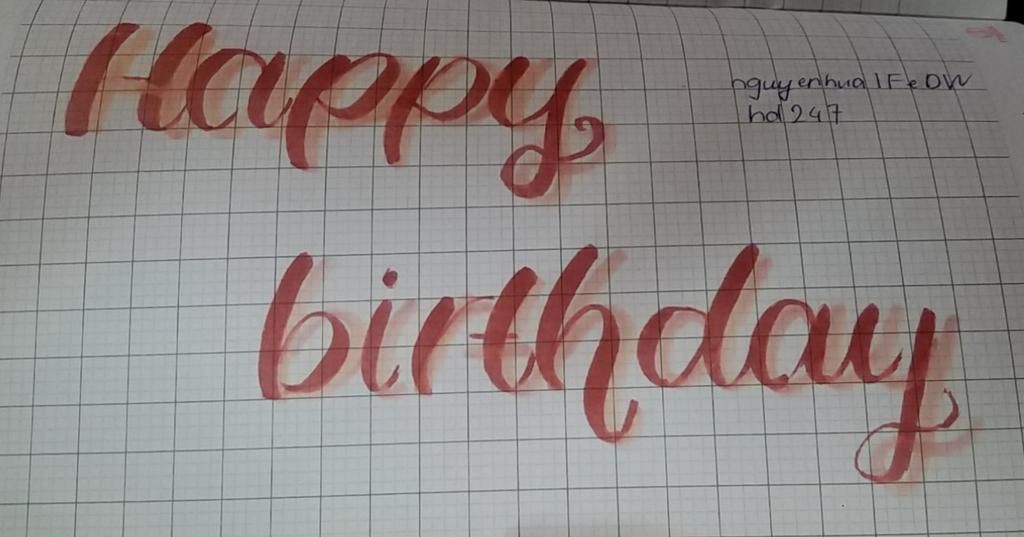 Happy
nguyenhualFeDW
hd247
birthday